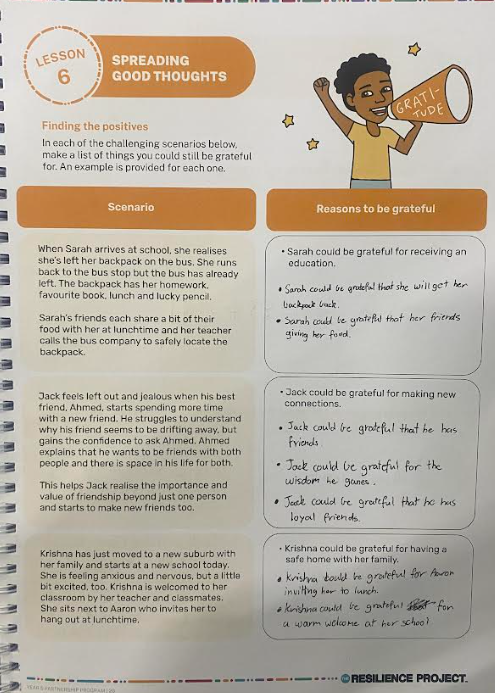 LESSON
6
SPREADING
GOOD THOUGHTS
GRATI-
TUDE
Finding the positives
In each of the challenging scenarios below,
make a list of things you could still be grateful
for. An example is provided for each one.
Scenario
Reasons to be grateful
When Sarah arrives at school, she realises
she's left her backpack on the bus. She runs
back to the bus stop but the bus has already
left. The backpack has her homework,
favourite book, lunch and lucky pencil.
Sarah's friends each share a bit of their
food with her at lunchtime and her teacher
calls the bus company to safely locate the
backpack.
• Sarah could be grateful for receiving an
education.
• Sarah could be grateful that she will get her
backpack back.
• Sarah could be grateful that her friends
giving her food.
Jack feels left out and jealous when his best
friend, Ahmed, starts spending more time
with a new friend. He struggles to understand
why his friend seems to be drifting away, but
gains the confidence to ask Ahmed. Ahmed
explains that he wants to be friends with both
people and there is space in his life for both.
This helps Jack realise the importance and
value of friendship beyond just one person
and starts to make new friends too.
• Jack could be grateful for making new
connections.
• Jack could be grateful that he has
friends
• Jack could be grateful for the
wisdom he ganes.
• Jack could be grateful that he has
loyal friends.
Krishna has just moved to a new suburb with
her family and starts at a new school today.
She is feeling anxious and nervous, but a little
bit excited, too. Krishna is welcomed to her
classroom by her teacher and classmates.
She sits next to Aaron who invites her to
hang out at lunchtime.
• Krishna could be grateful for having a
safe home with her family.
• Krishna could be grateful for Aaron
inviting her to lunch.
• Krishna could be grateful for
a warm welcome at her school
THE RESILIENCE PROJECT.